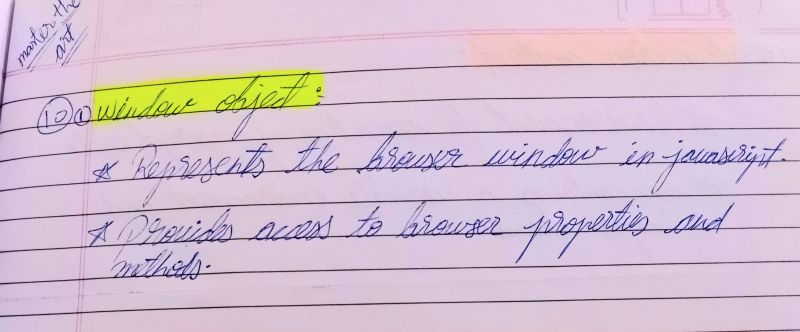 master the
art
10 1 window object:
* Represents the browser window in javascript.
* Provides access to browser properties and
methods.